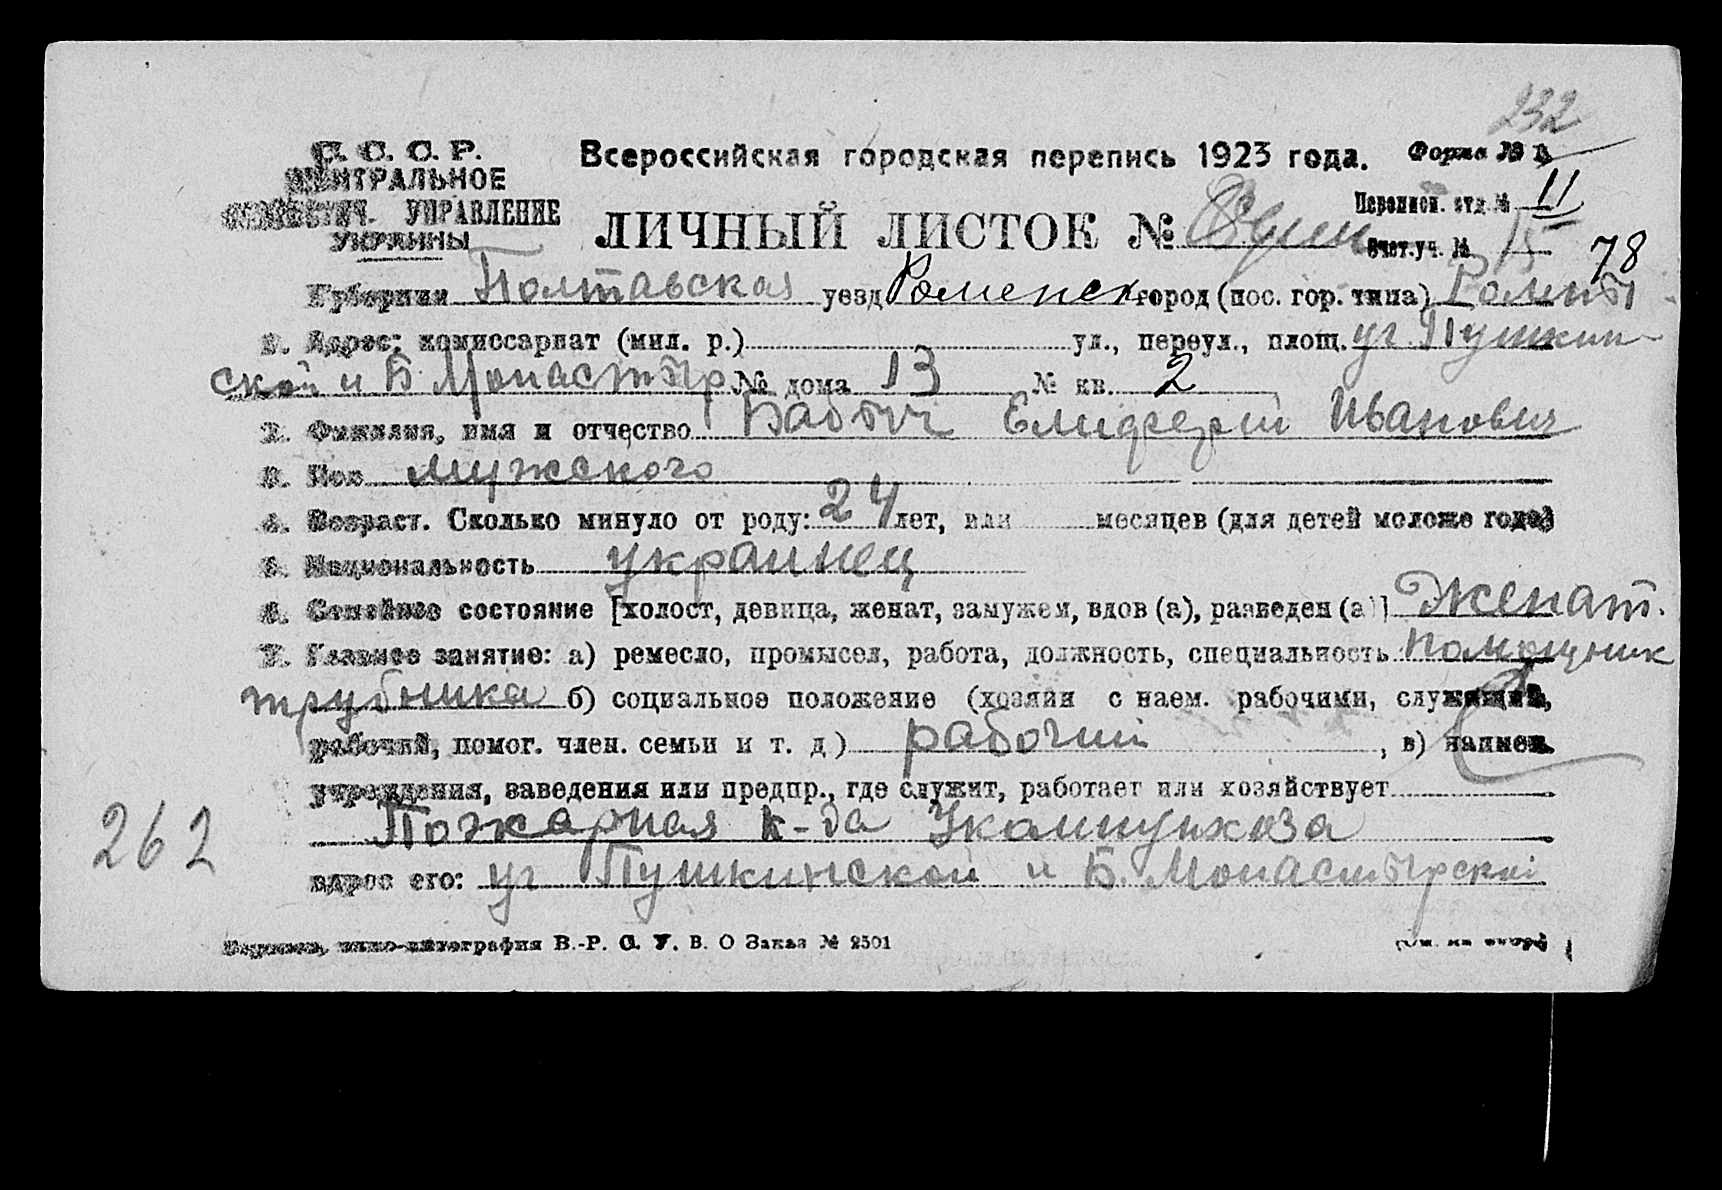 232
С. С. С. Р.
ЦЕНТРАЛЬНОЕ
СТАТИСТИЧ. УПРАВЛЕНИЕ
УКРАИНЫ
Всероссийская городская перепись 1923 года. Форма № 1
Переписн. отд. № 11
ЛИЧНЫЙ ЛИСТОК №
Счет. уч. № 15 78
Губерния Полтавская уезд Роменск город (пос. гор. типа) Ромны
Адрес: комиссариат (мил. р.) ул., переул., площ. уг. Пушкин-
ской и Б Монастыр № дома 13 № кв. 2
Фамилия, имя и отчество Бабыч Елифергий Иванович
3. Пол мужского
4. Возраст. Сколько минуло от роду: 24 лет, или месяцев (для детей моложе года)
5. Национальность украинец
6. Семейное состояние [холост, девица, женат, замужем, вдов (а), разведен (а)] Женат.
7. Главное занятие: а) ремесло, промысел, работа, должность, специальность помощник
трубника б) социальное положение (хозяин с наем. рабочими, служащий,
рабочий, помог. член. семьи и т. д) рабочий, в) наимен.
учреждения, заведения или предпр., где служит, работает или хозяйствует
Пожарная к-да Укоммунхоза
262
адрес его: уг Пушкинской и Б. Монастырской
графия В.-Р. С. У. В. О Заказ № 2501